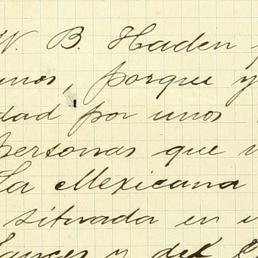 W. B. Haden
unos, porque y
dad por unos
personas que
La Mexicana
situada en
y del